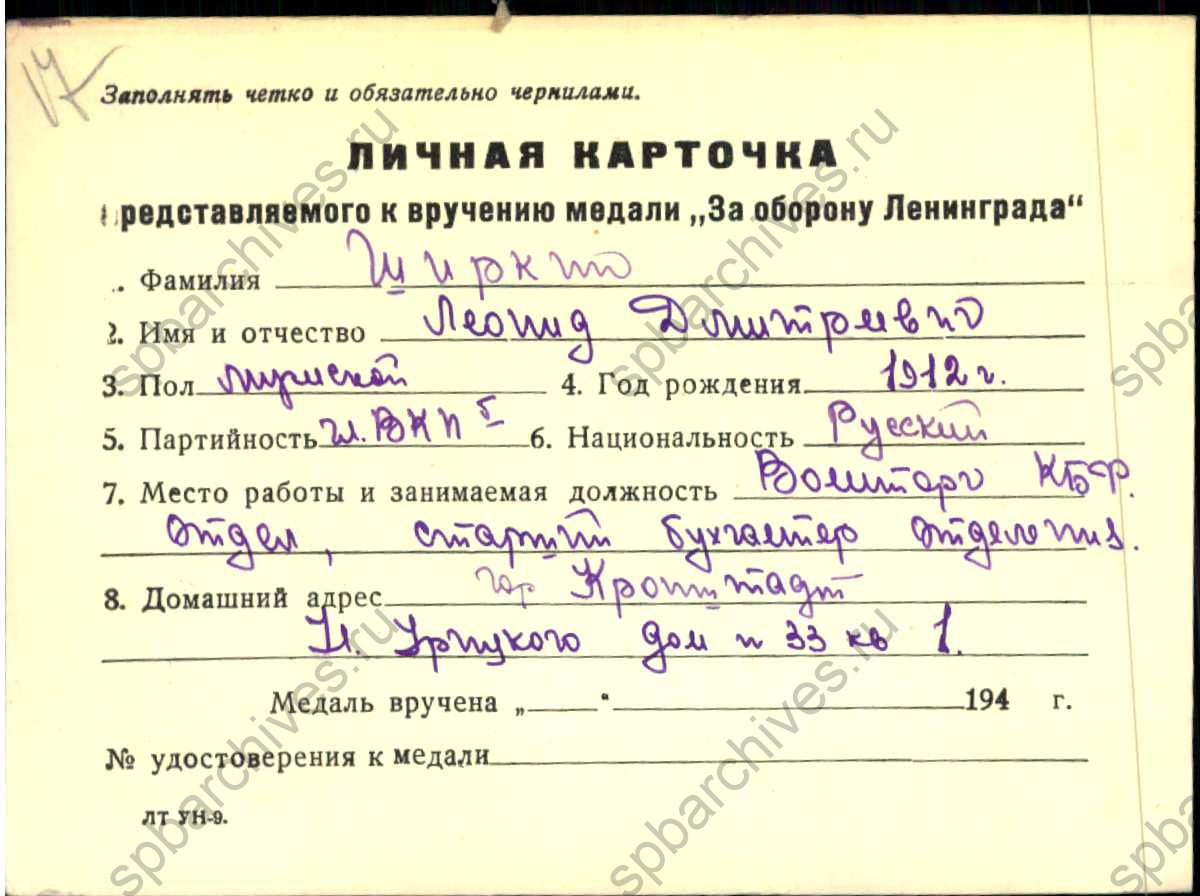 17
Заполнять четко и обязательно чернилами.
ЛИЧНАЯ КАРТОЧКА
редставляемого к вручению медали „За оборону Ленинграда“
Фамилия
2. Имя и отчество Леонид Дмитриевич
3. Пол мужской 4. Год рождения 1912 г.
5. Партийность чл. ВКП б 6. Национальность Русский
7. Место работы и занимаемая должность Военторг КБФ.
отдел, старший бухгалтер отделения.
8. Домашний адрес гор Кронштадт
Ул. Урицкого дом n 33 кв 1.
Медаль вручена „ “ 194 г.
№ удостоверения к медали
ЛТ УН-9.
spbarchives.ru
spbarchives.ru
spbarchives.ru
spbarchives.ru